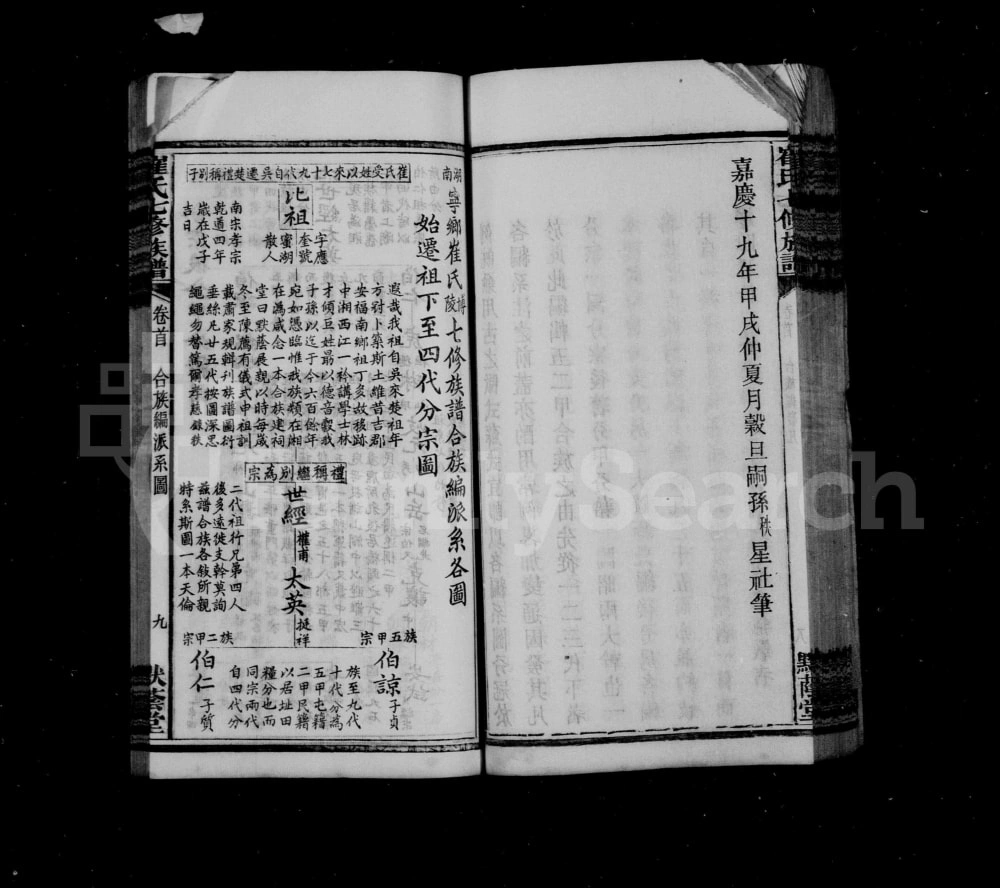 崔氏七修族譜
默蔭堂
嘉慶十九年甲戌仲夏月穀旦嗣孫秩星社筆
湖南寧鄉崔氏博陵七修族譜合族編派系各圖
始遷祖下至四代分宗圖
崔氏受姓以來七十九代自吳遷楚禮稱別子
比祖
字應奎號蜜湖散人
南宗孝宗乾道四年歲在戊子吉日
遐哉我祖自吳來楚祖年
方對卜築斯土維昔古郡
安福南鄉祖丁多故移跡
中湘西江一衿講學士林
才碩巨姓最以德音毅我
子孫以迄于今六百餘年
在滿咸念一本合族建祠
宛如憑臨惟我族類在湘
堂曰默蔭展親以時每歲
冬至陳薦有儀式申祖訓
載肅家規輯刊族譜圖衍
垂絲凡廿五代按圖深思
繩繩勿替篤爾孝慈
禮稱繼別為宗
世經
權甫
太英
挺祥
二代祖行兄第四人
後多遠徙支幹莫詢
茲譜合族各敘所親
特系斯圖一本天倫
族五甲宗
伯諒子貞
族二甲宗
伯仁子質
族至九代
十代分為
五甲屯籍
二甲民籍
以居址田
糧分也而
同宗兩代
自四代分
崔氏七修族譜
卷首
合族編派系圖
九
默蔭堂
FamilySearch